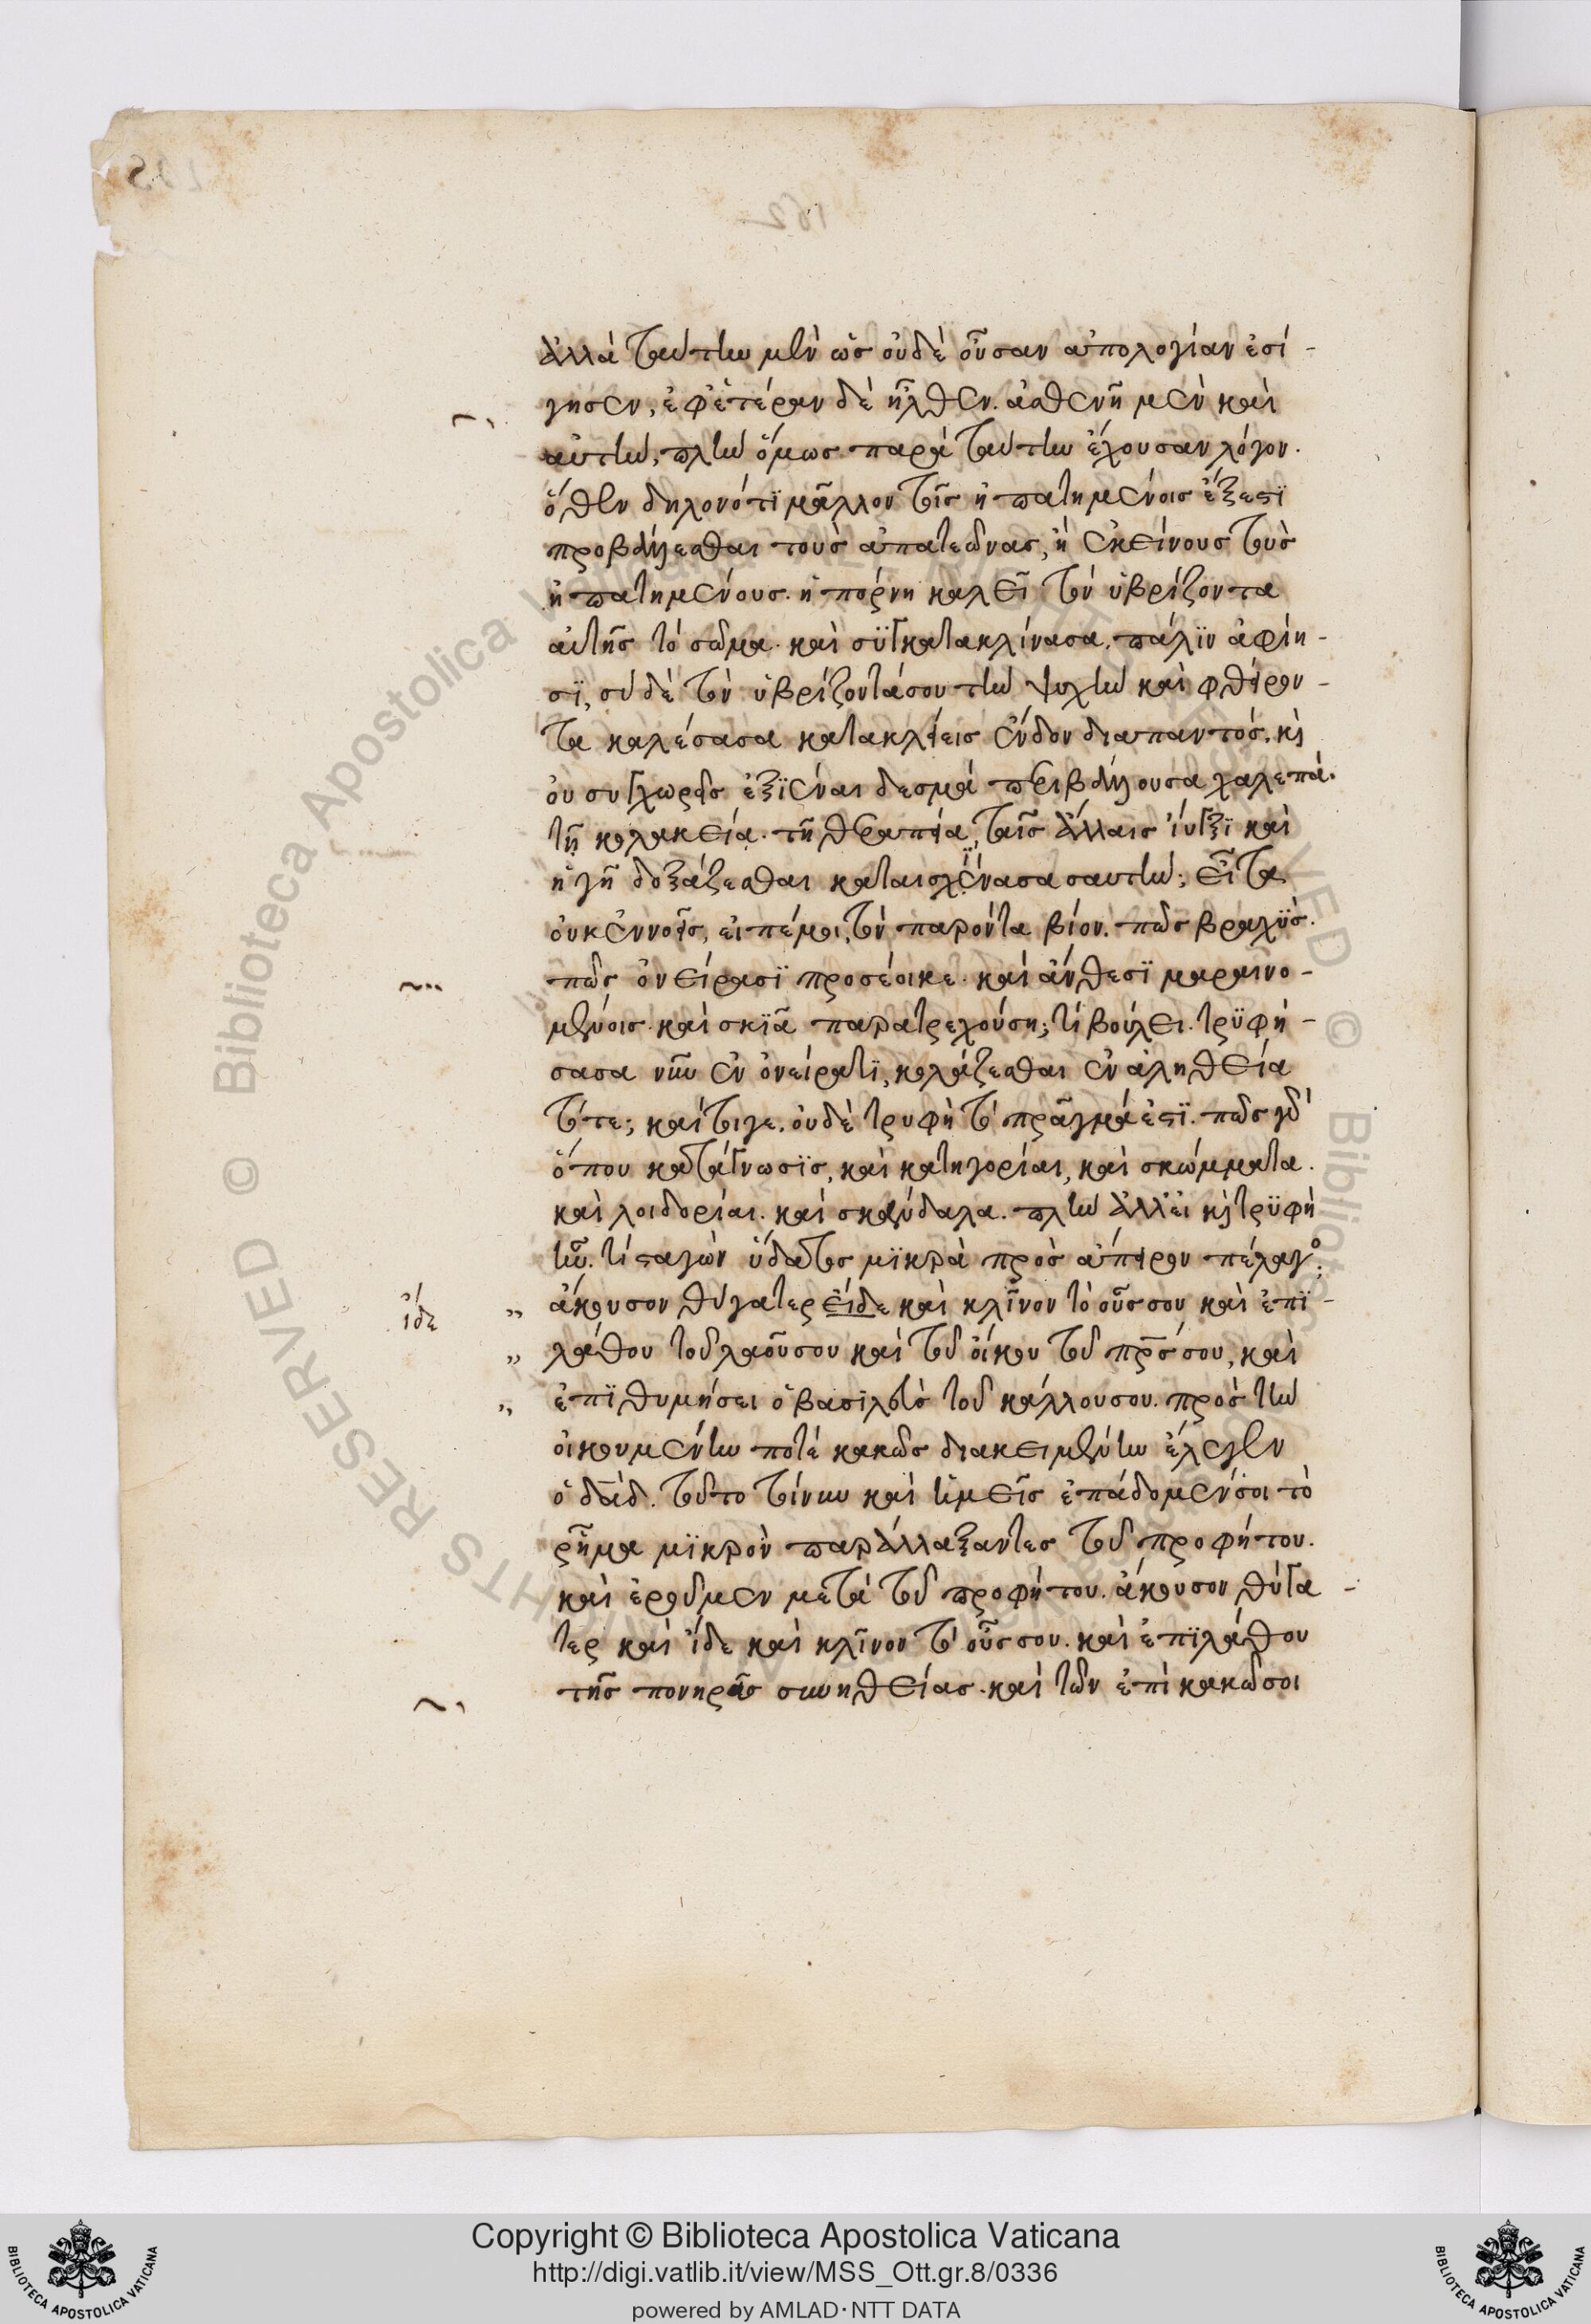 ἀλλὰ ταύτην μὲν ὡς οὐδὲ οὖσαν ἀπολογίαν ἐσί-
γησεν, ἐφ' ἑτέραν δὲ ἦλθεν. ἀσθενῆ μὲν καὶ
αὐτὴν, πλὴν ὅμως παρὰ ταύτην ἔχουσαν λόγον.
ὅθεν δηλονότϊ μᾶλλον τοῖς ἠπατημένοις ἔξεστϊ
προβάλλεσθαι τοὺς ἀπατεῶνας, ἢ ἐκείνους τοὺς
ἠπατημένους. ἡ πόρνη καλεῖ τὸν ὑβρίζοντα
αὐτῆς τὸ σῶμα. καὶ συγκατακλίνασα. πάλϊν ἀφίη-
σϊ, σὺ δὲ τὸν ὑβρίζοντά σου τὴν ψυχὴν καὶ φθείρον-
τα καλέσασα κατακλείεις ἔνδον διαπαντός. κỳ
οὐ συγχωρεῖς ἐξϊέναι δεσμὰ περιβάλλουσα χαλεπά.
τῇ κολακεία. τῇ θεραπεία, ταῖς ἄλλαις ἴυγξϊ καὶ
ἡγῆ δοξάζεσθαι καταισχύνασα σαυτήν; εἶτα
οὐκ ἐννοεῖς, εἰπέ μοι, τὸν παρόντα βίον. πῶς βραχϋς.
πῶς ὀνείρασϊ προσέοικε. καὶ ἄνθεσϊ μαραινο-
μένοις. καὶ σκϊᾶ παρατρεχούση; τί βούλει. τρϋφή-
σασα νῦν ἐν ὀνείρατϊ, κολάζεσθαι ἐν ἀληθεία
τότε; καίτοιγε. οὐδὲ τρυφὴ τὸ πρᾶγμά ἐστϊ. πῶς γὰρ
ὅπου κατάγνωσϊς, καὶ κατηγορίαι, καὶ σκώμματα.
καὶ λοιδορίαι. καὶ σκάνδαλα. πλὴν ἀλλ' εἰ κỳ τρϋφὴ
ἦν. τί σταγὼν ὕδατος μϊκρὰ πρὸς ἄπειρον πέλαγος;
ἴδε ,, ἄκουσον θύγατερ εἴδε καὶ κλῖνον τὸ οὖς σου καὶ ἐπϊ-
,, λάθου τοῦ λαοῦ σου καὶ τοῦ οἴκου τοῦ πρς σου, καὶ
,, ἐπϊθυμήσει ὁ βασϊλεὺς τοῦ κάλλους σου. πρὸς τὴν
οἰκουμένην ποτὲ κακῶς διακειμένην ἔλεγεν
ὁ δαδ. τοῦτο τοίνυν καὶ ἡμεῖς ἐπάδομέν σοι τὸ
ρῆμα μϊκρὸν παραλλάξαντες τοῦ προφήτου.
καὶ ἐροῦμεν μετὰ τοῦ προφήτου. ἄκουσον θύγα-
τερ καὶ ἴδε καὶ κλῖνον τὸ οὖς σου. καὶ ἐπϊλάθου
τῆς πονηρᾶς συνηθείας. καὶ τῶν ἐπὶ κακῶ σοι
Copyright © Biblioteca Apostolica Vaticana
http://digi.vatlib.it/view/MSS_Ott.gr.8/0336
powered by AMLAD·NTT DATA